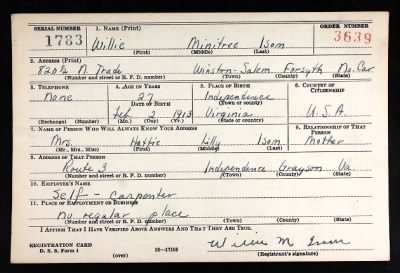 SERIAL NUMBER 1. NAME (Print) ORDER NUMBER
1783 Willie Minitree Isom 3639
(First) (Middle) (Last)
2. ADDRESS (Print)
820½ N. Trade Winston-Salem Forsyth No. Car
(Number and street or R. F. D. number) (Town) (County) (State)
3. TELEPHONE 4. AGE IN YEARS 5. PLACE OF BIRTH 6. COUNTRY OF CITIZENSHIP
None 27 Independence
DATE OF BIRTH (Town or county)
Feb. 1913 Virginia U.S.A.
(Exchange) (No.) (Mo.) (Day) (Yr.) (State or country)
7. NAME OF PERSON WHO WILL ALWAYS KNOW YOUR ADDRESS 8. RELATIONSHIP OF THAT PERSON
Mrs. Hattie Lilly Isom Mother
(Mr., Mrs., Miss) (First) (Middle) (Last)
9. ADDRESS OF THAT PERSON
Route 3 Independence Grayson Va.
(Number and street or R. F. D. number) (Town) (County) (State)
10. EMPLOYER'S NAME
Self - carpenter
11. PLACE OF EMPLOYMENT OR BUSINESS
no regular place
(Number and street or R. F. D. number) (Town) (County) (State)
I AFFIRM THAT I HAVE VERIFIED ABOVE ANSWERS AND THAT THEY ARE TRUE.
REGISTRATION CARD Willie M Isom
D. S. S. Form 1 16—17105
(over) (Registrant's signature)